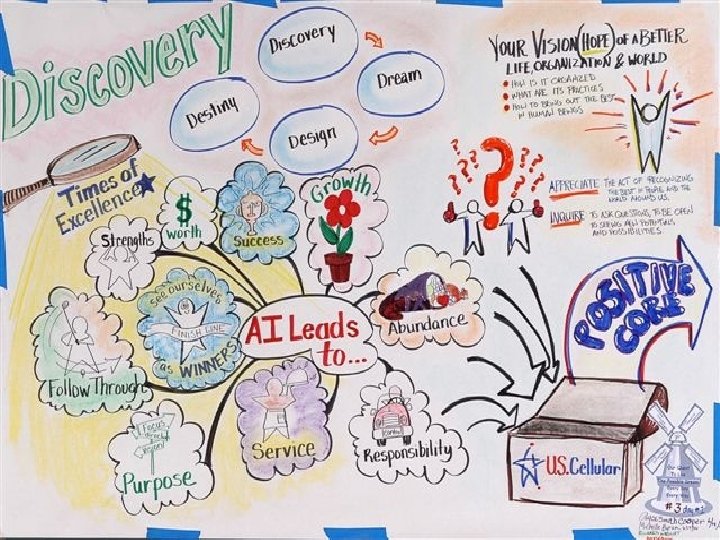 Discovery
Discovery
Dream
Design
Destiny
YOUR VISION (HOPE) OF A BETTER
LIFE, ORGANIZATION & WORLD
HOW IS IT ORGANIZED
WHAT ARE ITS PRACTICES
HOW TO BRING OUT THE BEST
IN HUMAN BEINGS
APPRECIATE THE ACT OF RECOGNIZING
THE BEST IN PEOPLE AND THE
WORLD AROUND US.
INQUIRE TO ASK QUESTIONS, TO BE OPEN
TO SEEING NEW POTENTIALS
AND POSSIBILITIES
Times of
Excellence
Strengths
$
Worth
Success
Growth
see ourselves
FINISH LINE
as WINNERS
AI Leads
to...
Abundance
Follow Through
Purpose
Service
Responsibility
POSITIVE
CORE
U.S. Cellular
Our Quest
#3